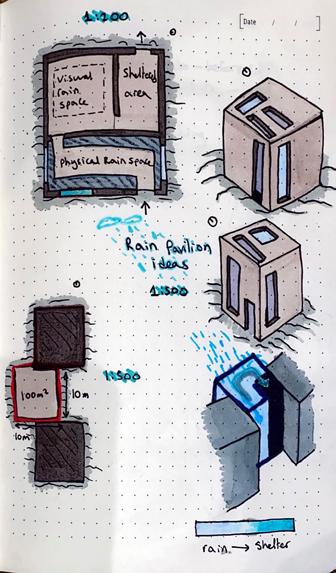 1:100
Date / /
visual
rain
space
Sheltered
area
Physical Rain space
Rain Pavilion
ideas
1:500
1:500
100m²
10m
10m
rain → shelter